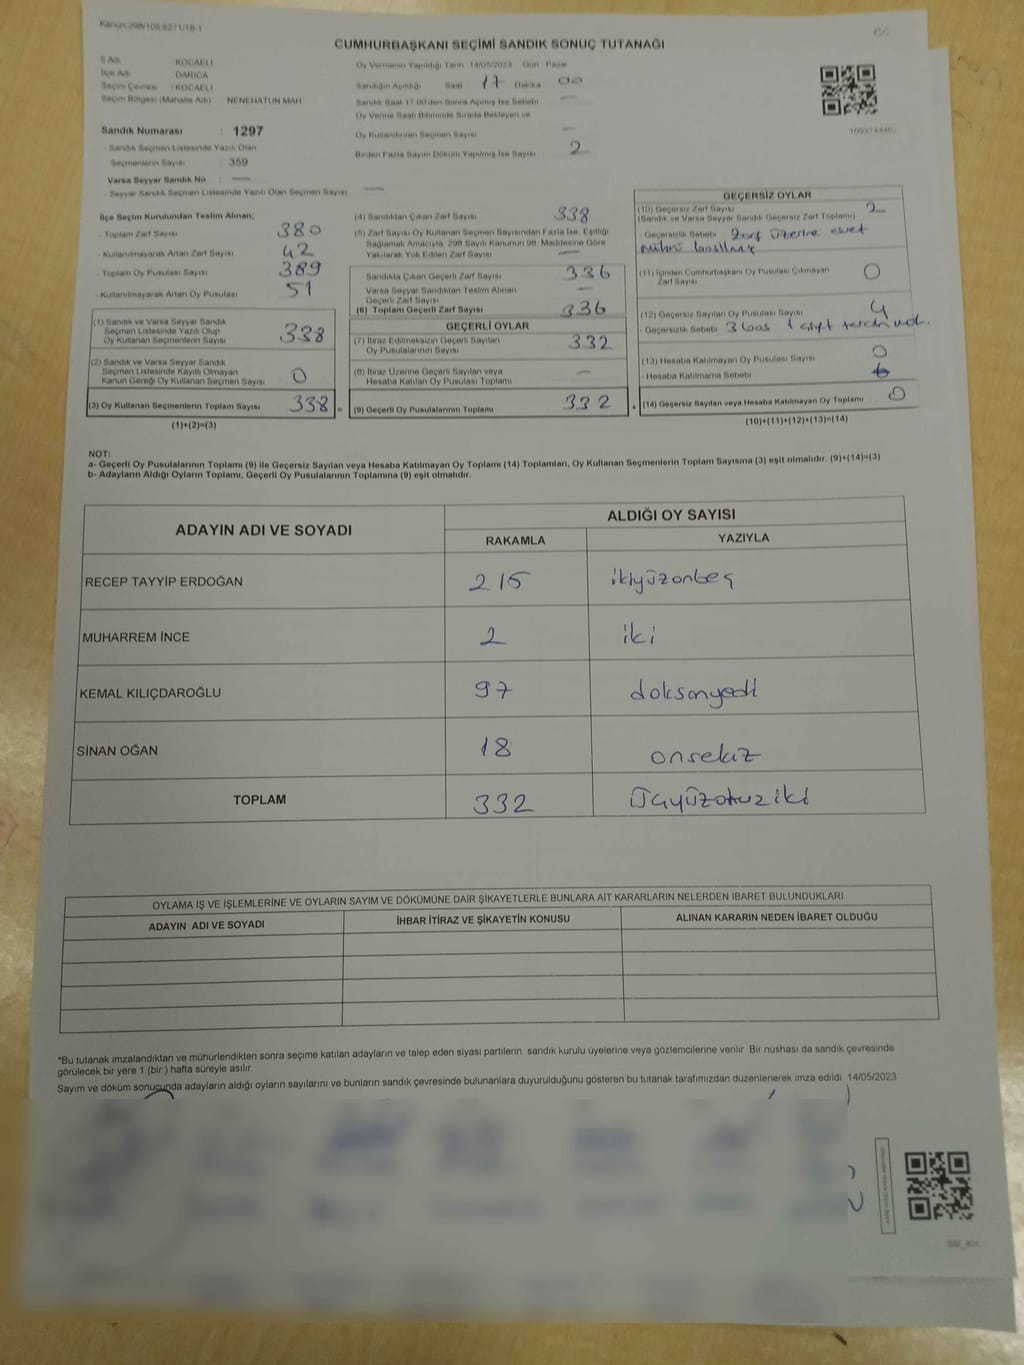 Kanun:298/105,6271/18-1
CUMHURBAŞKANI SEÇİMİ SANDIK SONUÇ TUTANAĞI
İl Adı KOCAELİ
İlçe Adı DARICA
Seçim Çevresi : KOCAELİ
Seçim Bölgesi (Mahalle Adı) : NENEHATUN MAH
Sandık Numarası : 1297
- Sandık Seçmen Listesinde Yazılı Olan
Seçmenlerin Sayısı : 359
Varsa Seyyar Sandık No : —
- Seyyar Sandık Seçmen Listesinde Yazılı Olan Seçmen Sayısı : —
Oy Vermenin Yapıldığı Tarih 14/05/2023 Gün Pazar
Sandığın Açıldığı Saat 17 Dakika 00
Sandık Saat 17.00'den Sonra Açılmış İse Sebebi —
Oy Verme Saati Bitiminde Sırada Bekleyen ve
Oy Kullandırılan Seçmen Sayısı —
Birden Fazla Sayım Döküm Yapılmış İse Sayısı 2
İlçe Seçim Kurulundan Teslim Alınan;
- Toplam Zarf Sayısı 380
- Kullanılmayarak Artan Zarf Sayısı 42
- Toplam Oy Pusulası Sayısı 389
- Kullanılmayarak Artan Oy Pusulası 51
(1) Sandık ve Varsa Seyyar Sandık
Seçmen Listesinde Yazılı Olup
Oy Kullanan Seçmenlerin Sayısı 338
(2) Sandık ve Varsa Seyyar Sandık
Seçmen Listesinde Kayıtlı Olmayan
Kanun Gereği Oy Kullanan Seçmen Sayısı 0
(3) Oy Kullanan Seçmenlerin Toplam Sayısı 338 =
(1)+(2)=(3)
(4) Sandıktan Çıkan Zarf Sayısı 338
(5) Zarf Sayısı Oy Kullanan Seçmen Sayısından Fazla İse, Eşitliği
Sağlamak Amacıyla, 298 Sayılı Kanunun 98. Maddesine Göre
Yakılarak Yok Edilen Zarf Sayısı —
Sandıkta Çıkan Geçerli Zarf Sayısı 336
Varsa Seyyar Sandıktan Teslim Alınan
Geçerli Zarf Sayısı —
(6) Toplam Geçerli Zarf Sayısı 336
GEÇERLİ OYLAR
(7) İtiraz Edilmeksizin Geçerli Sayılan
Oy Pusulalarının Sayısı 332
(8) İtiraz Üzerine Geçerli Sayılan veya
Hesaba Katılan Oy Pusulası Toplamı —
(9) Geçerli Oy Pusulalarının Toplamı 332 +
GEÇERSİZ OYLAR
(10) Geçersiz Zarf Sayısı 2
(Sandık ve Varsa Seyyar Sandık Geçersiz Zarf Toplamı)
- Geçersizlik Sebebi zarf üzerine evet
mührü basılmış
(11) İçinden Cumhurbaşkanı Oy Pusulası Çıkmayan
Zarf Sayısı 0
(12) Geçersiz Sayılan Oy Pusulası Sayısı 4
Geçersizlik Sebebi 3 boş 1 çift tercih
(13) Hesaba Katılmayan Oy Pusulası Sayısı 0
- Hesaba Katılmama Sebebi
(14) Geçersiz Sayılan veya Hesaba Katılmayan Oy Toplamı
(10)+(11)+(12)+(13)=(14)
NOT:
a- Geçerli Oy Pusulalarının Toplamı (9) ile Geçersiz Sayılan veya Hesaba Katılmayan Oy Toplamı (14) Toplamları, Oy Kullanan Seçmenlerin Toplam Sayısına (3) eşit olmalıdır. (9)+(14)=(3)
b- Adayların Aldığı Oyların Toplamı, Geçerli Oy Pusulalarının Toplamına (9) eşit olmalıdır.
ADAYIN ADI VE SOYADI ALDIĞI OY SAYISI
RAKAMLA YAZIYLA
RECEP TAYYİP ERDOĞAN 215 ikiyüzonbeş
MUHARREM İNCE 2 iki
KEMAL KILIÇDAROĞLU 97 doksanyedi
SİNAN OĞAN 18 onsekiz
TOPLAM 332 üçyüzotuziki
OYLAMA İŞ VE İŞLEMLERİNE VE OYLARIN SAYIM VE DÖKÜMÜNE DAİR ŞİKAYETLERLE BUNLARA AİT KARARLARIN NELERDEN İBARET BULUNDUKLARI
ADAYIN ADI VE SOYADI İHBAR İTİRAZ VE ŞİKAYETİN KONUSU ALINAN KARARIN NEDEN İBARET OLDUĞU
*Bu tutanak imzalandıktan ve mühürlendikten sonra seçime katılan adayların ve talep eden siyasi partilerin sandık kurulu üyelerine veya gözlemcilerine verilir. Bir nüshası da sandık çevresinde
görülecek bir yere 1 (bir ) hafta süreyle asılır.
Sayım ve döküm sonucunda adayların aldığı oyların sayılarını ve bunların sandık çevresinde bulunanlara duyurulduğunu gösteren bu tutanak tarafımızdan düzenlenerek imza edildi. 14/05/2023